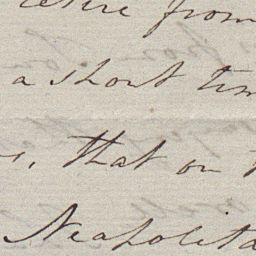 retire from
a short tim
s, that on
Neapolita